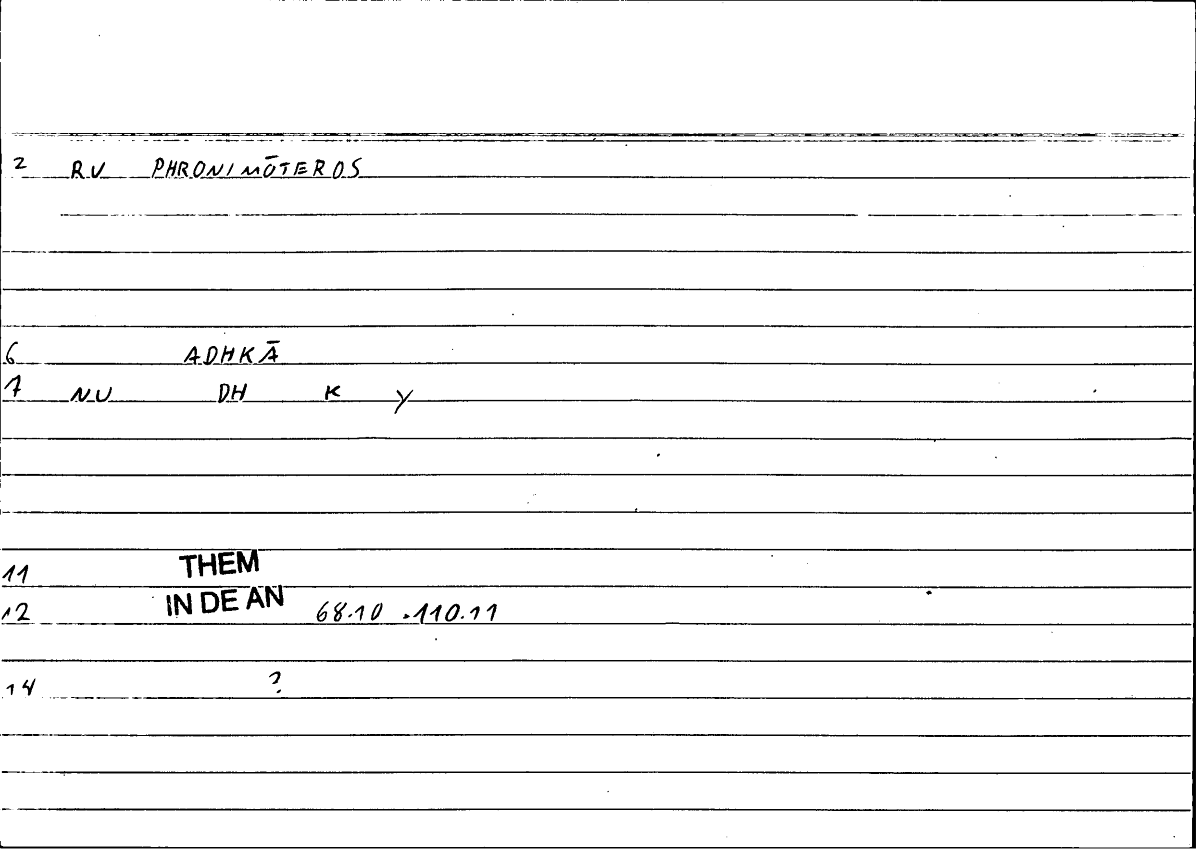 2 RU PHRONIMŌTEROS
6 ADHKĀ
7 NU DH K Y
11 THEM
12 IN DE AN 68.10 .110.11
14 ?